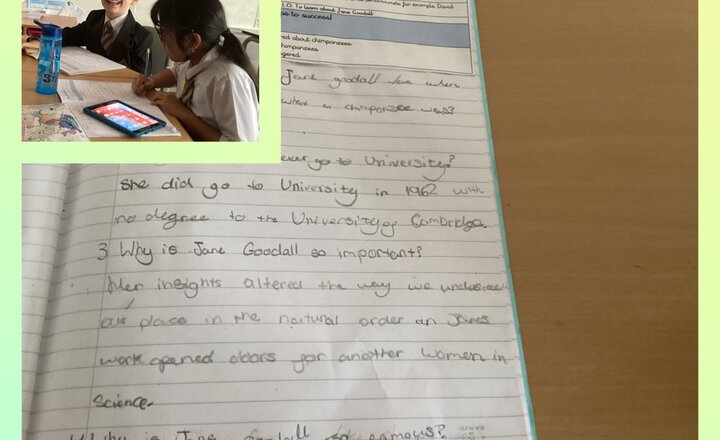 L.O. To learn about Jane Goodall
ss to succeed
ed about chimpanzees
himpanzees
gered
Jane goodall
what a chimpanzee was?
ever go to University?
She did go to University in 1962 with
no degree to the University of Cambridge.
3 Why is Jane Goodall so important?
Her insights altered the way we
our place in the natural order an Janes
work opened doors for another women in
Science.
Why is Jane Goodall so famous?